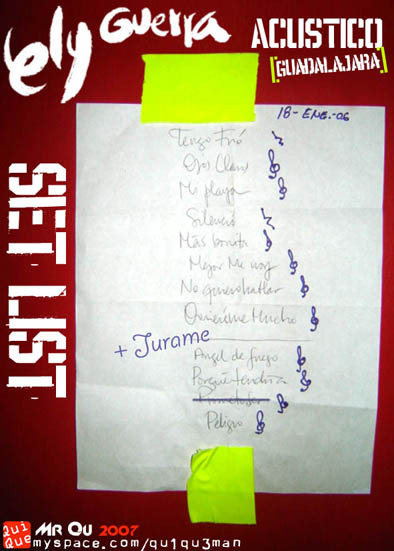 ely GUERRA
ACUSTICO
[GUADALAJARA]
SET LIST
18-ENE.-06
Tengo Frió
Ojos Claros
Mi playa
Silencio
Más bonita
Mejor Me voy
No quiero hablar
Quiereme Mucho
+ Jurame
Angel de fuego
Porque tendría
Peligro
Qui
Que
MR QU 2007
myspace.com/qu1qu3man